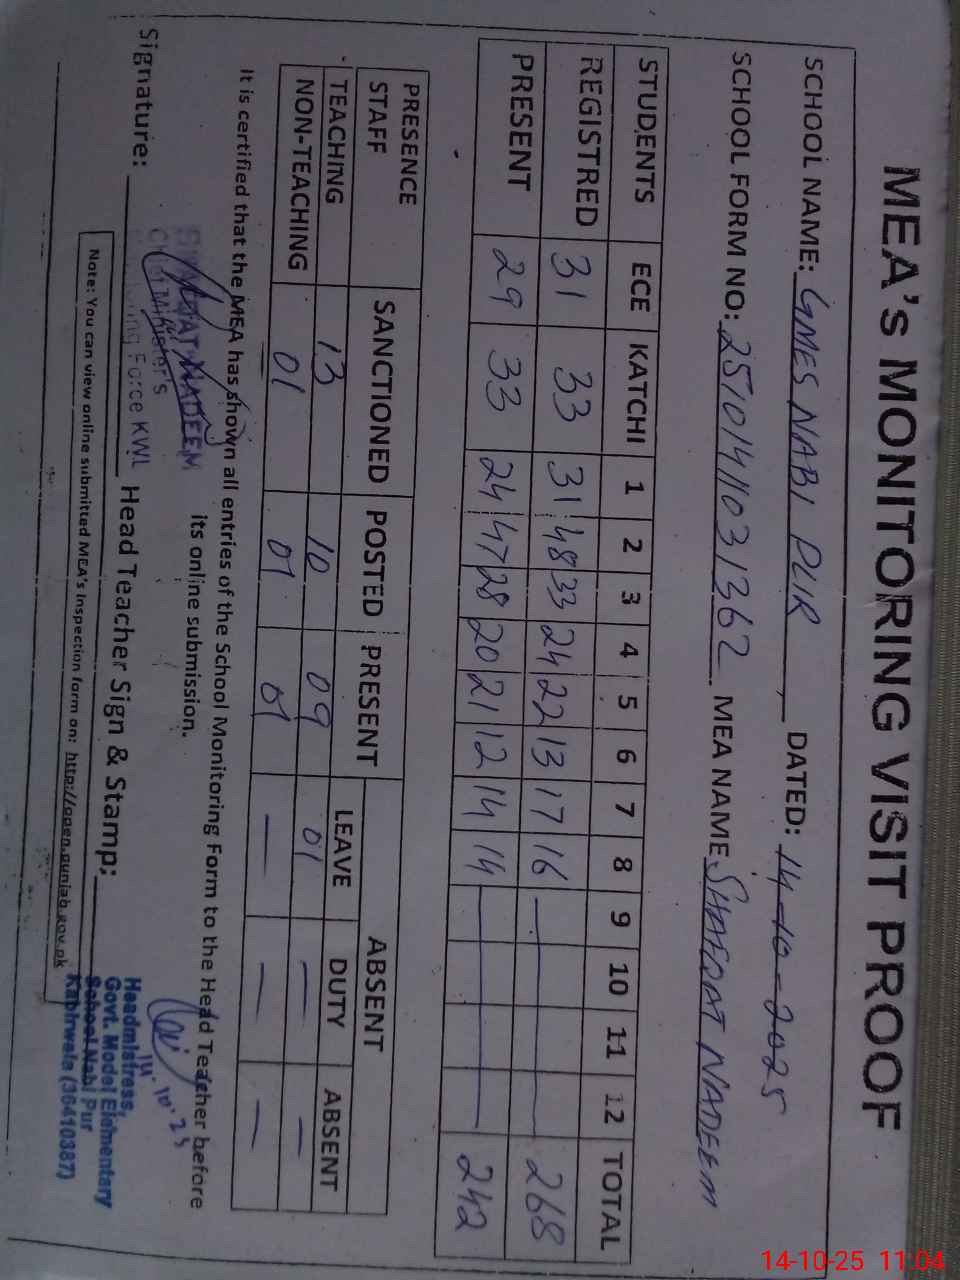 MEA's MONITORING VISIT PROOF
SCHOOL NAME: GMES NABI PUR, DATED: 14-10-2025
SCHOOL FORM NO: 25101411031362. MEA NAME SHAFQAT NADEEM
STUDENTS ECE KATCHI 1 2 3 4 5 6 7 8 9 10 11 12 TOTAL
REGISTRED 31 33 31 48 33 24 22 13 17 16 — 268
PRESENT 29 33 24 47 28 20 21 12 14 14 — 242
PRESENCE STAFF SANCTIONED POSTED PRESENT ABSENT
LEAVE DUTY ABSENT
TEACHING 13 10 09 01 — —
NON-TEACHING 01 01 01 — — —
It is certified that the MEA has shown all entries of the School Monitoring Form to the Head Teacher before
its online submission.
NADEEM
Chief Minister's
Force KWL
Signature: Head Teacher Sign & Stamp:
14.10.25
Headmistress,
Govt. Model Elementary
School Nabi Pur
Kabirwala (36410387)
Note: You can view online submitted MEA's Inspection form on: http://open.punjab.gov.pk
14-10-25 11:04